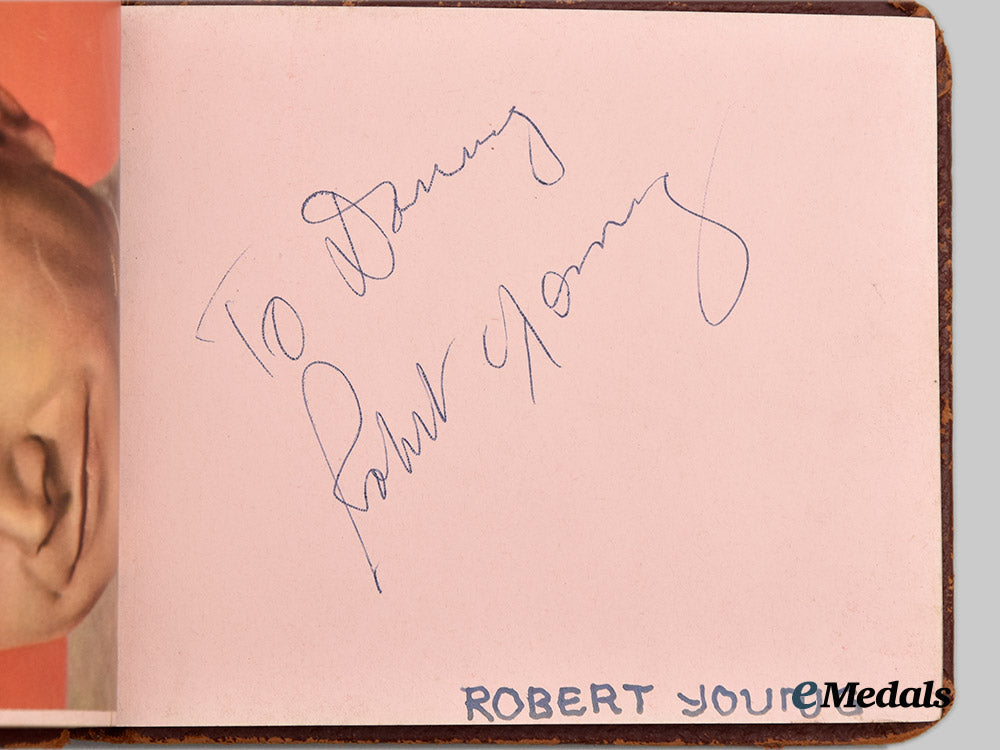 To Danny
Robert Young
ROBERT YOUNG
eMedals